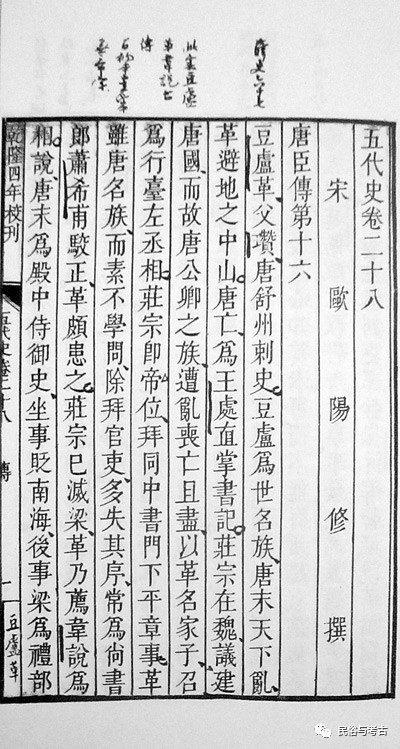 薛史六十七
五代史卷二十八
宋歐陽修撰
唐臣傳第十六
豆盧革父瓚唐舒州刺史豆盧為世名族唐末天下亂
革避地之中山唐亡為王處直掌書記莊宗在魏議建
唐國而故唐公卿之族遭亂喪亡且盡以革名家子召
為行臺左丞相莊宗卽帝位拜同中書門下平章事革
雖唐名族而素不學問除拜官吏多失其序常為尚書
郎蕭希甫駁正革頗患之莊宗已滅梁革乃薦韋說為
相說唐末為殿中侍御史坐事貶南海後事梁為禮部
乾隆四年校刊
五代史卷二十八 傳
一
豆盧革
民俗与考古